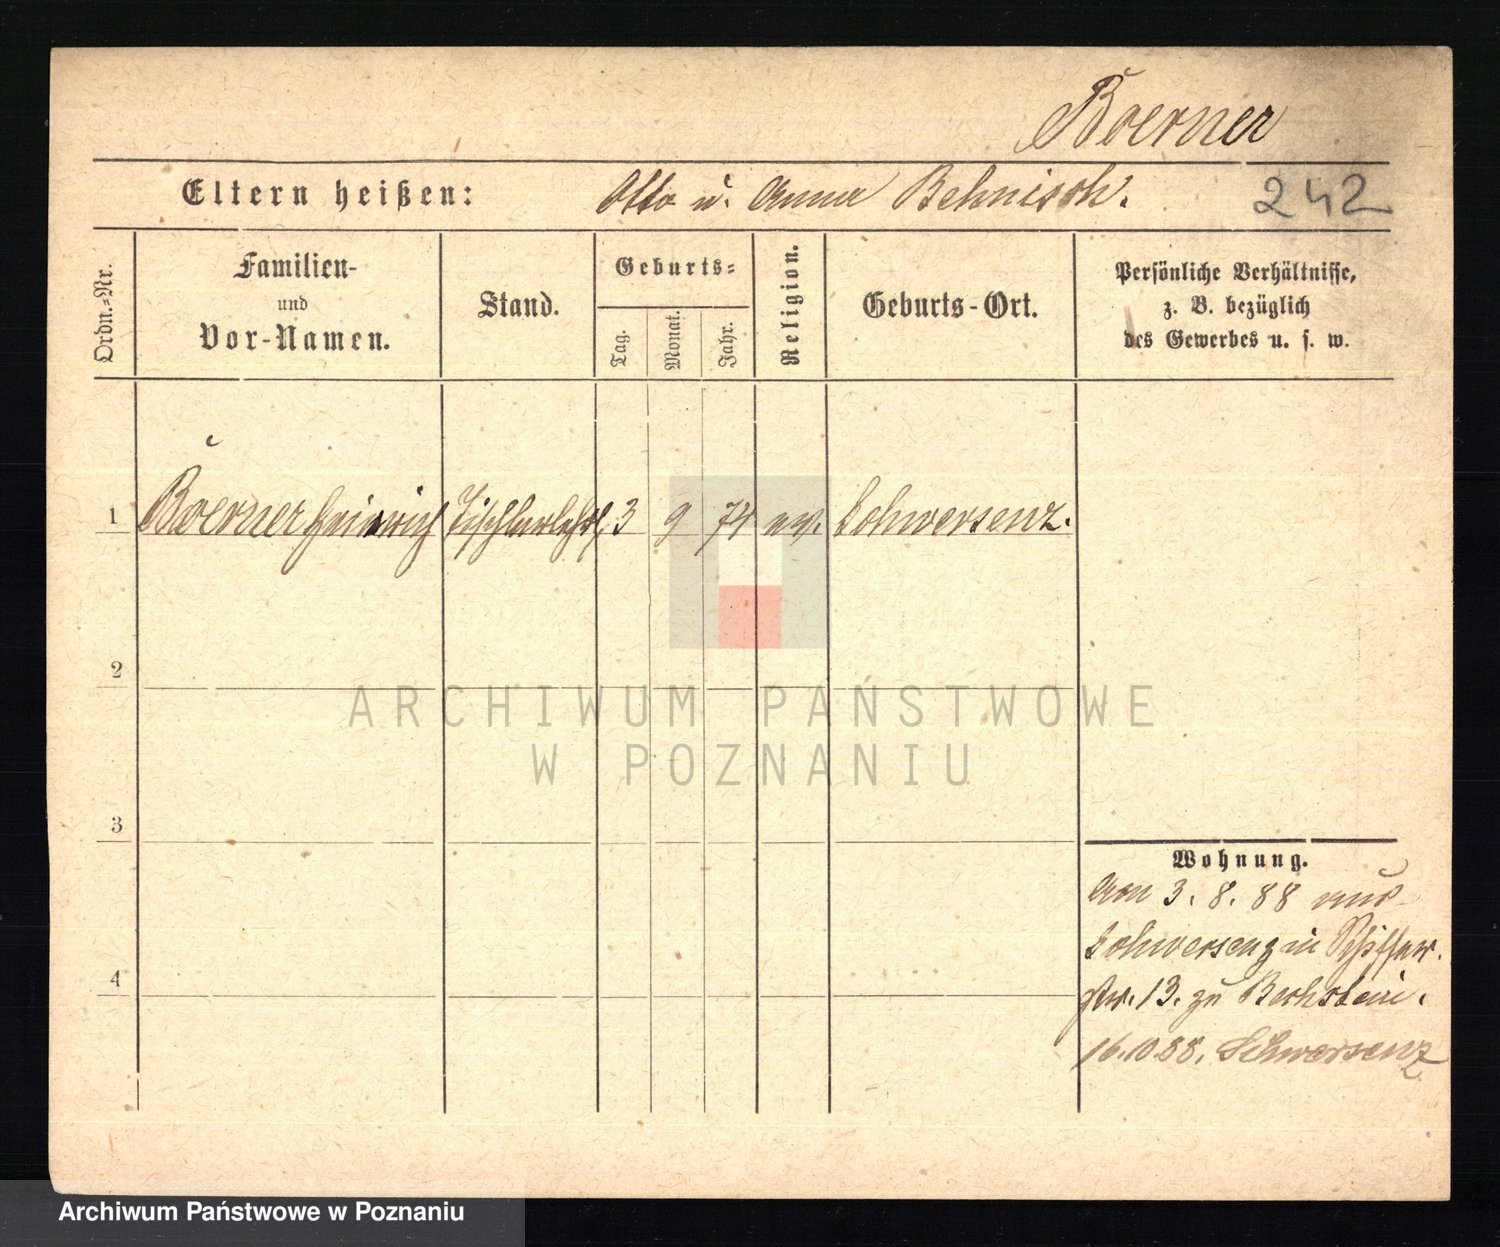 Boerner
Eltern heißen: Otto u. Anna Behnisch. 242
Ordn.-Nr.
Familien-
und
Vor-Namen.
Stand.
Geburts-
Tag.
Monat.
Jahr.
Religion.
Geburts-Ort.
Persönliche Verhältnisse,
z. B. bezüglich
des Gewerbes u. s. w.
1 Boerner Heinrich Tischlerlehrl. 3 9 74 ev. Schwersenz.
2
ARCHIWUM PAŃSTWOWE
W POZNANIU
3
Wohnung.
Am 3. 8. 88 aus
Schwersenz in Schiffer
str. 13. zu Bechstein.
4
16.10.88. Schwersenz
Archiwum Państwowe w Poznaniu